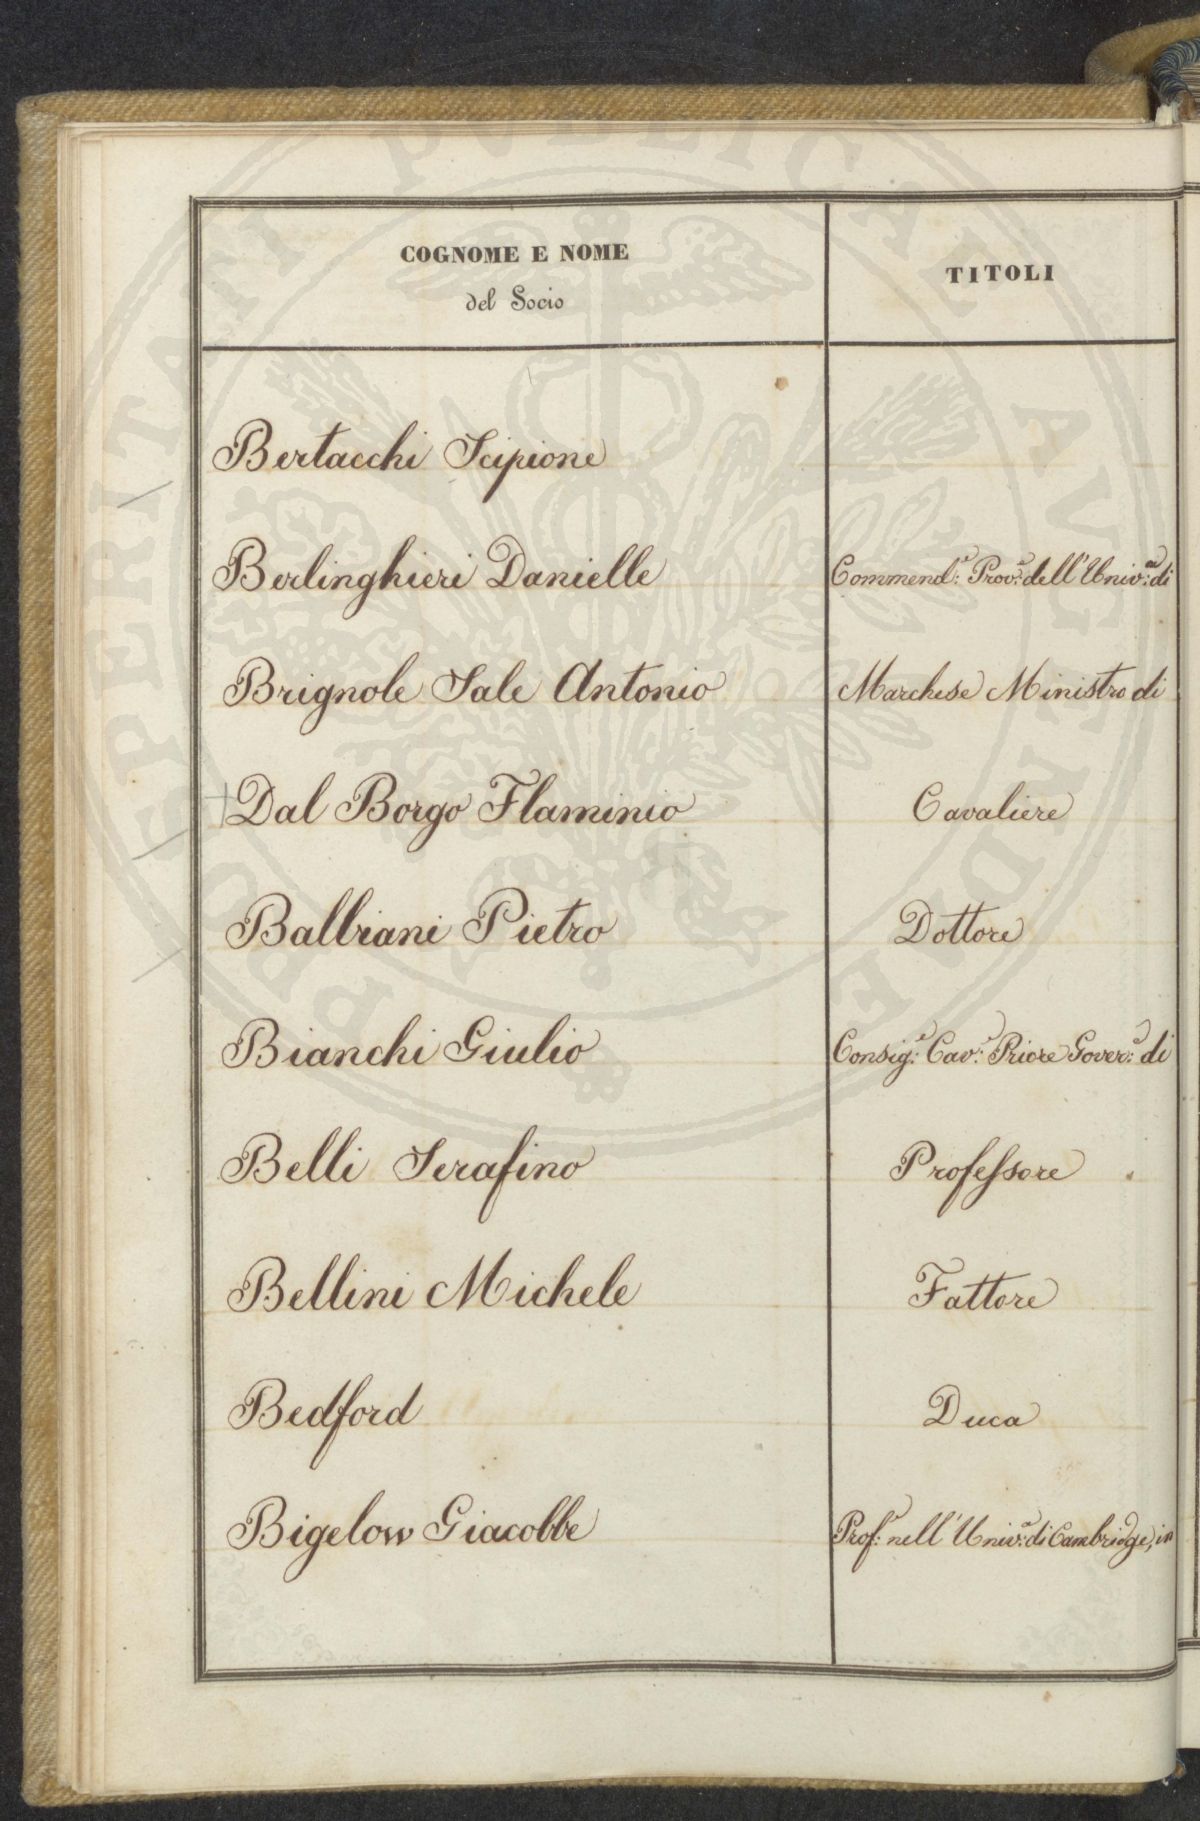 COGNOME E NOME
del Socio
TITOLI
Bertacchi Scipione
Berlinghieri Danielle
Commend.r: Prov.r: dell'Univ.à: di
Brignole Sale Antonio
Marchese Ministro di
Dal Borgo Flaminio
Cavaliere
Balbiani Pietro
Dottore
Bianchi Giulio
Consig.r: Cav.r: Priore Gover.r: di
Belli Serafino
Professore
Bellini Michele
Fattore
Bedford
Duca
Bigelow Giacobbe
Prof.r: nell'Univ.à: di Cambridge, in
PROSPERITATI PUBLICAE AUGENDAE